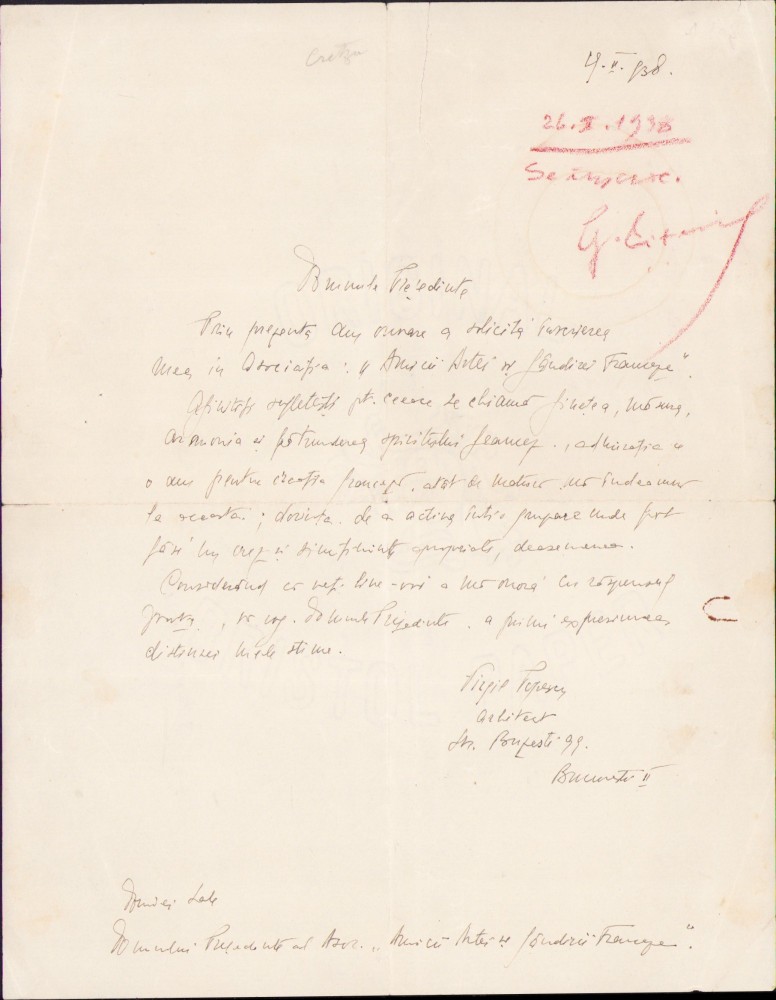 Cretzu
4.II.938.
26.X.1938
Se înscrie.
Domnule Președinte
Prin prezenta am onoare a solicita înscrierea
mea în Asociația: "Amicii Artei și Gândirei Franceze".
Afinități sufletești pt. ceeace se chiamă finețea, măsura,
armonia și pătrunderea spiritului francez, admirația ce
o am pentru creația franceză, atât de matură, mă îndeamnă
la aceasta; dorința de a activa într'o grupare unde pot
găsi un crez și simțiminte apropiate, deasemenea.
Considerând că veți bine-voi a mă onora cu răspunsul
, vă rog, Domnule Președinte, a primi expresiunea
distinsei mele stime.
Virgil Popescu
arhitect
Str. Popești 99.
București II
Domniei Sale
Domnului Președinte al Asoc. "Amicii Artei și Gândirii Franceze".